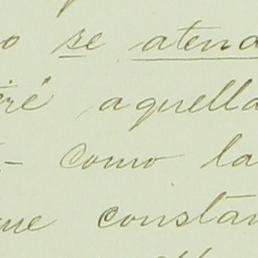 o se atend
eré aquella
- como la
que constan